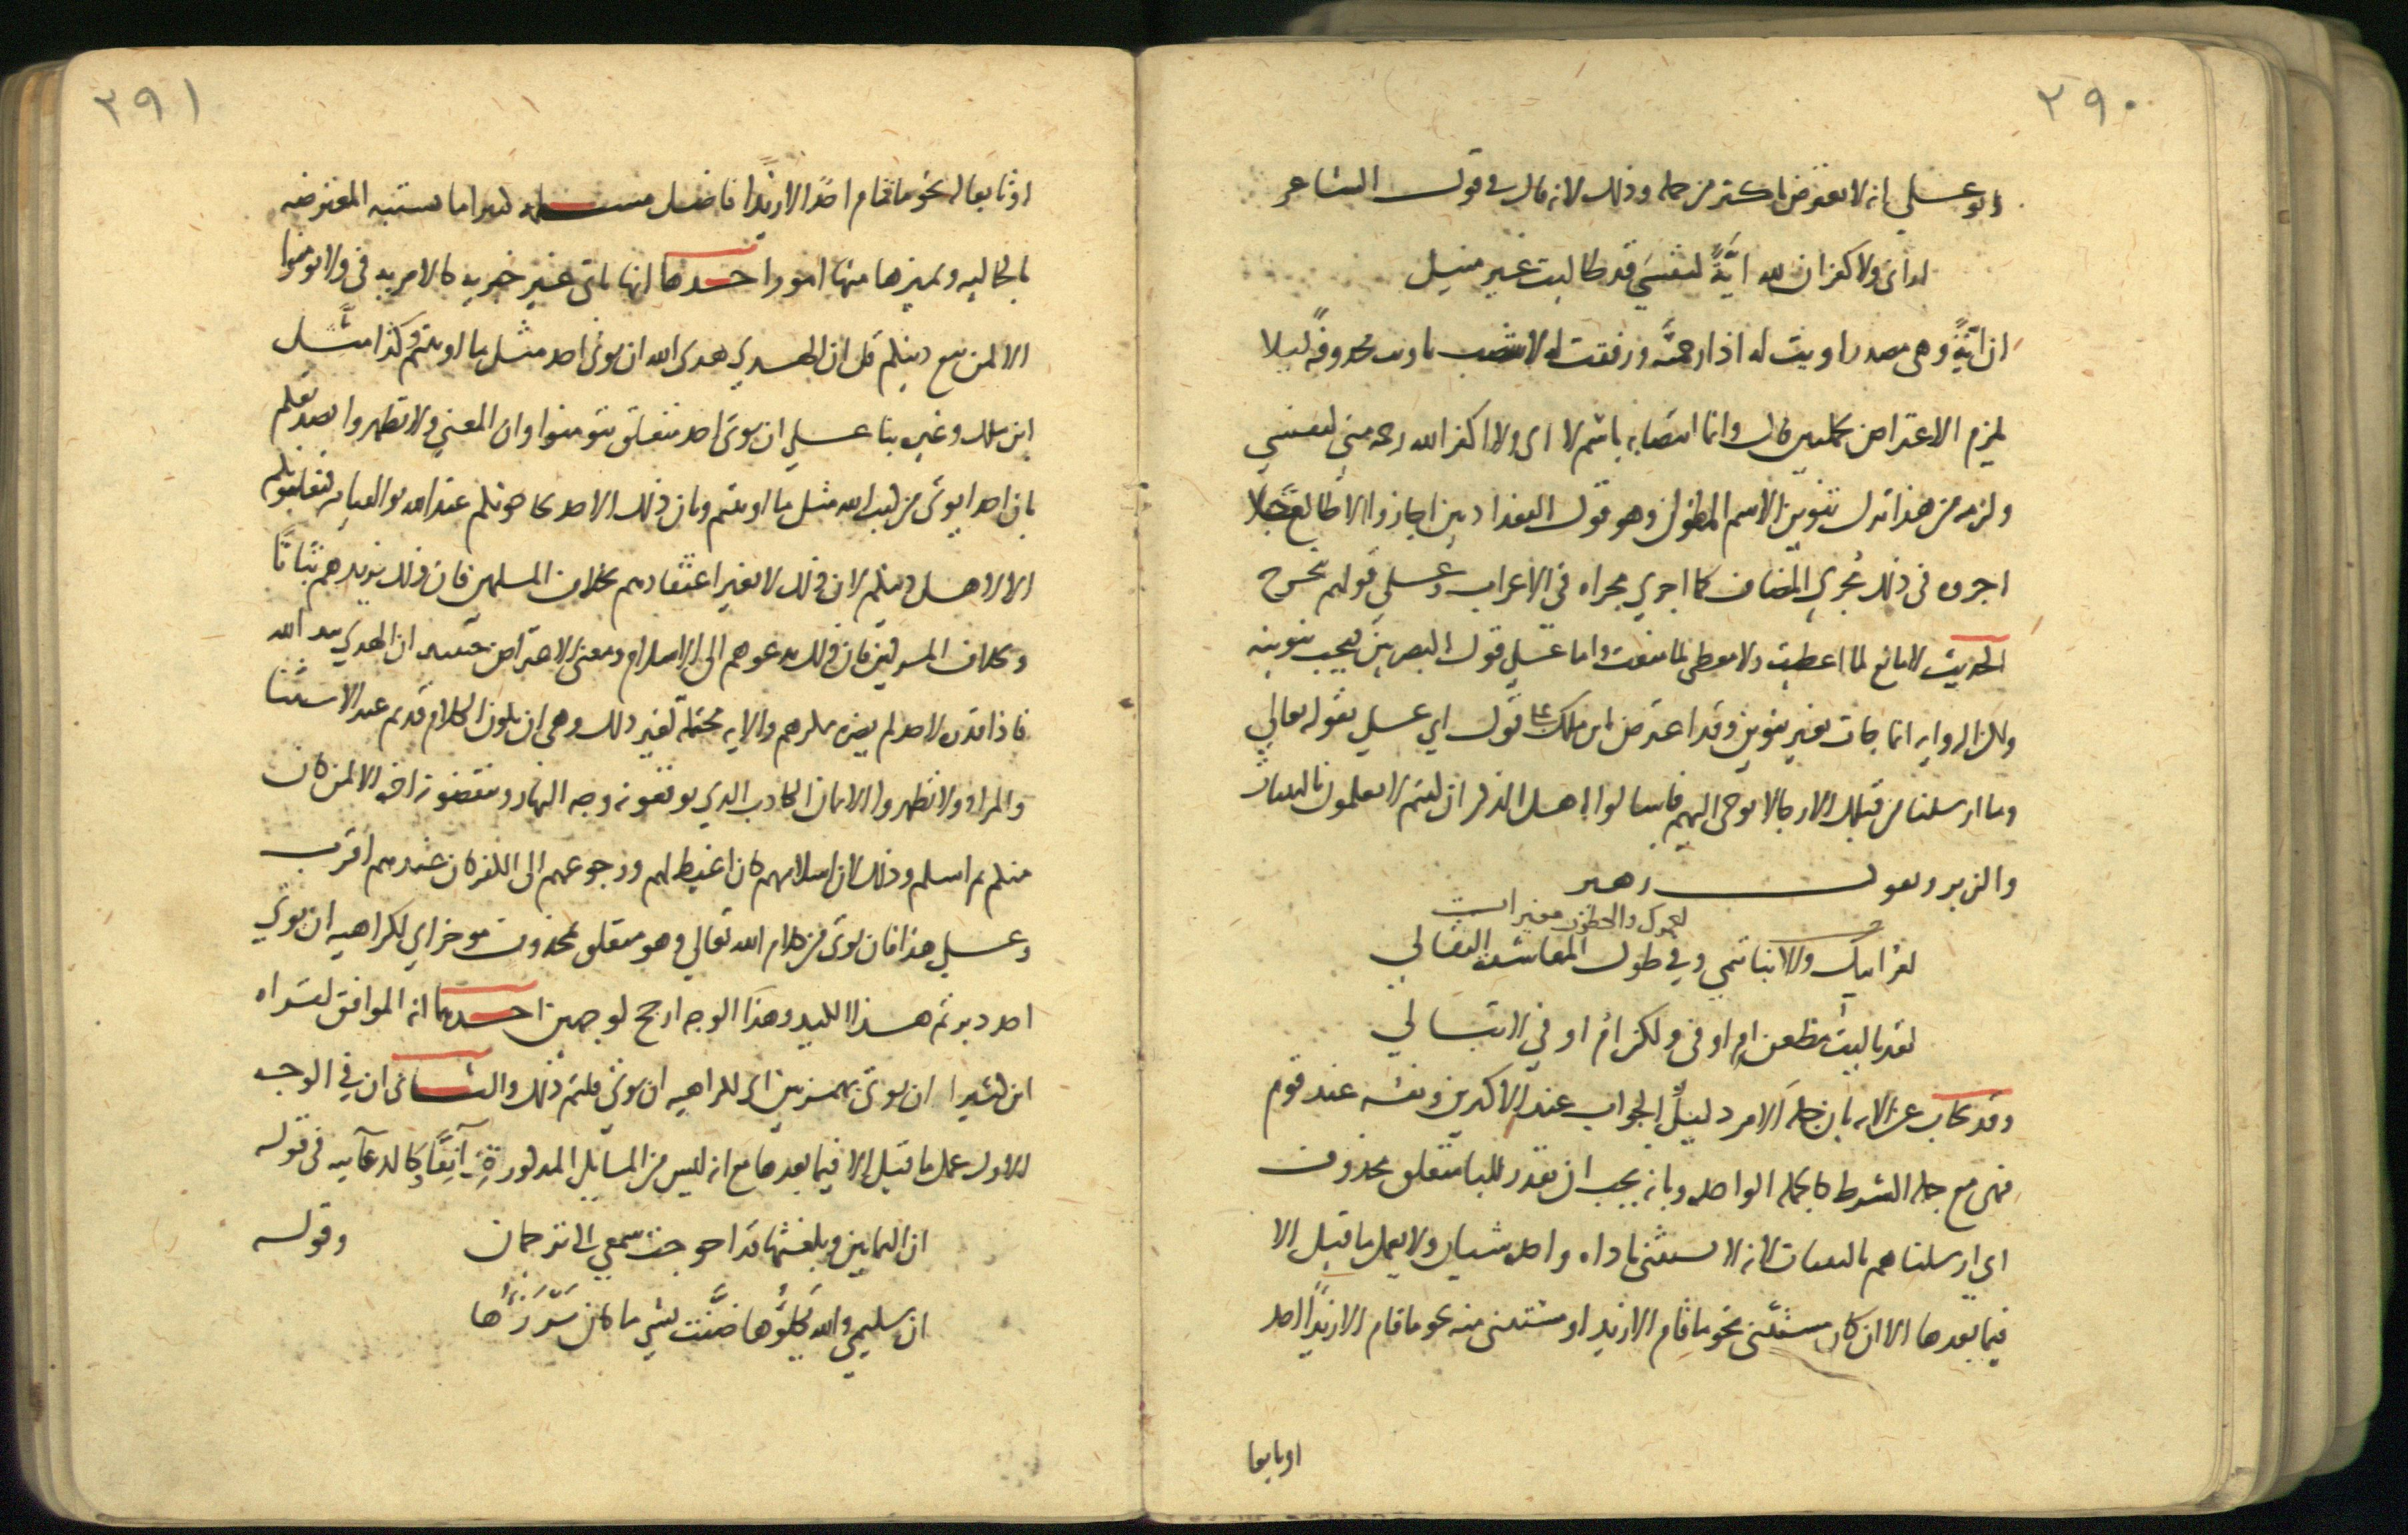 ٢٩٠
ابو علي انه لا يعترض باكثر من جملة وذلك لانه قال في قول الشاعر
اراني ولا كفران لله ايّةً لنفسي قد طالبت غير منيل
ان ايّةً وهي مصدر اويت له اذا رحمته ورفقت له لا ينتصب باويت محذوفةً ليلا
يلزم الاعتراض بجملتين قال وانما انتصابه باسم لا اي ولا اكفر الله رحمة مني لنفسي
ولزمه من هذا ترك تنوين الاسم المطول وهو قول البغداديين اجازوا لا طالع جبلا
اجروه في ذلك مجري المضاف كما اجري مجراه في الاعراب وعلي قولهم يتخرج
الحديث لا مانع لما اعطيت ولا معطي لما منعت واما علي قول البصريين فيجب تنوينه
ولكن الرواية انما جات بغير تنوين وقد اعترض ابن ملك علي قول ابي علي بقوله تعالي
وما ارسلنا من قبلك الا رجالا يوحي اليهم فاسالوا اهل الذكر ان كنتم لا تعلمون بالبينات
والزبر وبقول زهير
لعمرك والخطوب مغيرات
لعمر ابيك والانبا تنمي وفي طول المعاشرة التقالي
لقد باليت مظعن ام اوفي ولكن ام اوفي لا تبالي
وقد يجاب عن الاية بان جملة الامر دليل الجواب عند الاكثرين ونفسه عند قوم
فهي مع جملة الشرط كالجملة الواحدة وبانه يجب ان يقدر للبا متعلق محذوف
اي ارسلناهم بالبينات لانه لا يستثني باداة واحدة شيان ولا يعمل ما قبل الا
فيما بعدها الا ان كان مستثني نحو ما قام الا زيد او مستثني منه نحو ما قام الا زيدًا احد
او تابعا
٢٩١
او تابعا له نحو ما قام احدٌ الا زيدًا فاضل مسئلة كثيرا ما تشتبه المعترضة
بالحالية ويميزها منها امور احدها انها تاتي غير خبرية كالامرية في ولا تومنوا
الا لمن تبع دينكم قل ان الهدي هدي الله ان يوتي احد مثل ما اوتيتم كذا مثّل
ابن ملك وغيره بنا علي ان يوتي احد متعلق بتومنوا وان المعني ولا تظهروا تصديقكم
بان احدا يوتي من كتب الله مثل ما اوتيتم وبان ذلك الاحد يحاجونكم عند الله يوم القيامة فيغلبونكم
الا لاهل دينكم لان ذلك لا يغير اعتقادهم بخلاف المسلمين فان ذلك يزيدهم ثباتًا
وبخلاف المشركين فان ذلك يدعوهم الي الاسلام ومعني الاعتراض حينئذ ان الهدي بيد الله
فاذا قدره لاحد لم يضره مكرهم والاية محتملة لغير ذلك وهي ان يكون الكلام قد تم عند الاستثنا
والمراد ولا تظهروا الايمان الكاذب الذي توقعونه وجه النهار وتنقضونه اخره الا لمن كان
منكم ثم اسلم وذلك لان اسلامهم كان اغيظ لهم ورجوعهم الي الكفر كان عندهم اقرب
وعلي هذا فان يوتي من كلام الله تعالي وهو متعلق بمحذوف موخر اي لكراهية ان يوتي
احد دبرتم هذا الكيد وهذا الوجه ارجح لوجهين احدهما انه الموافق لقراة
ابن كثير اان يوتي بهمزتين اي لكراهية ان يوتي قلتم ذلك والثاني ان في الوجه
الاول عمل ما قبل الا فيما بعدها مع انه ليس من المسايل المذكورة آنفًا كالدعائية في قوله
ان الثمانين وبلغتها قد احوجت سمعي الي ترجمان وقوله
ان سليمي والله يكلوها ضنّت بشي ما كان يرزوها